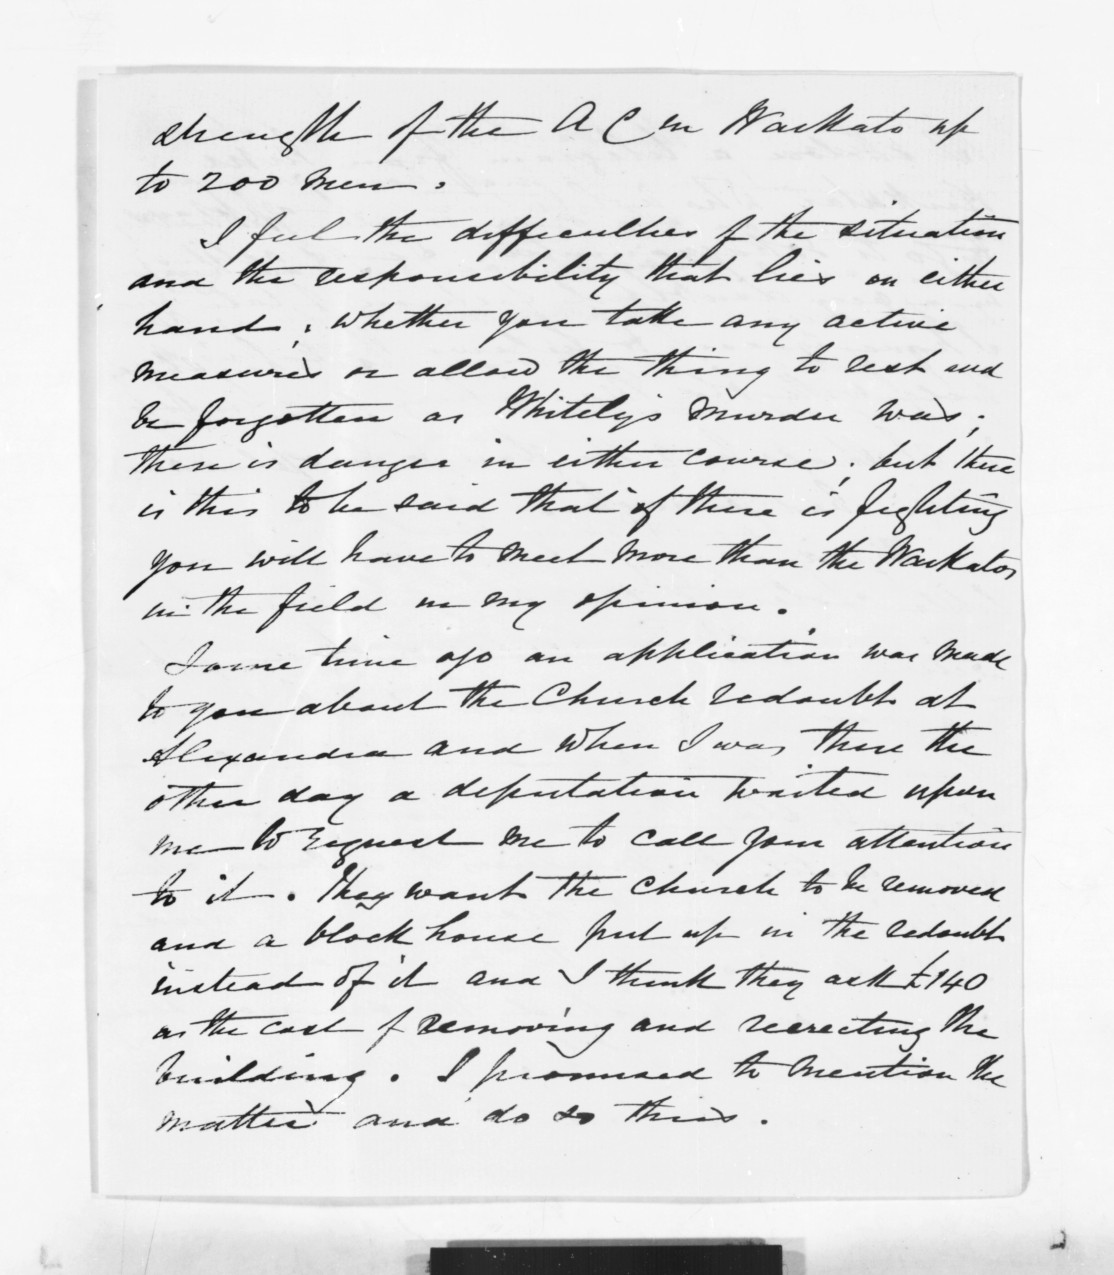 strength of the A C in Waikato up
to 200 men.
I feel the difficulties of the situation
and the responsibility that lies on either
hand; whether you take any active
measures or allow the thing to rest and
be forgotten as Whitely's murder was;
there is danger in either course; but there
is this to be said that if there is fighting
you will have to meet more than the Waikatos
in the field in my opinion.
Some time ago an application was made
to you about the Church redoubt at
Alexandra and when I was there the
other day a deputation waited upon
me to request me to call your attention
to it. They want the Church to be removed
and a block house put up in the redoubt
instead of it and I think they ask £140
as the cost of removing and reerecting the
building. I promised to mention the
matter and do so this.